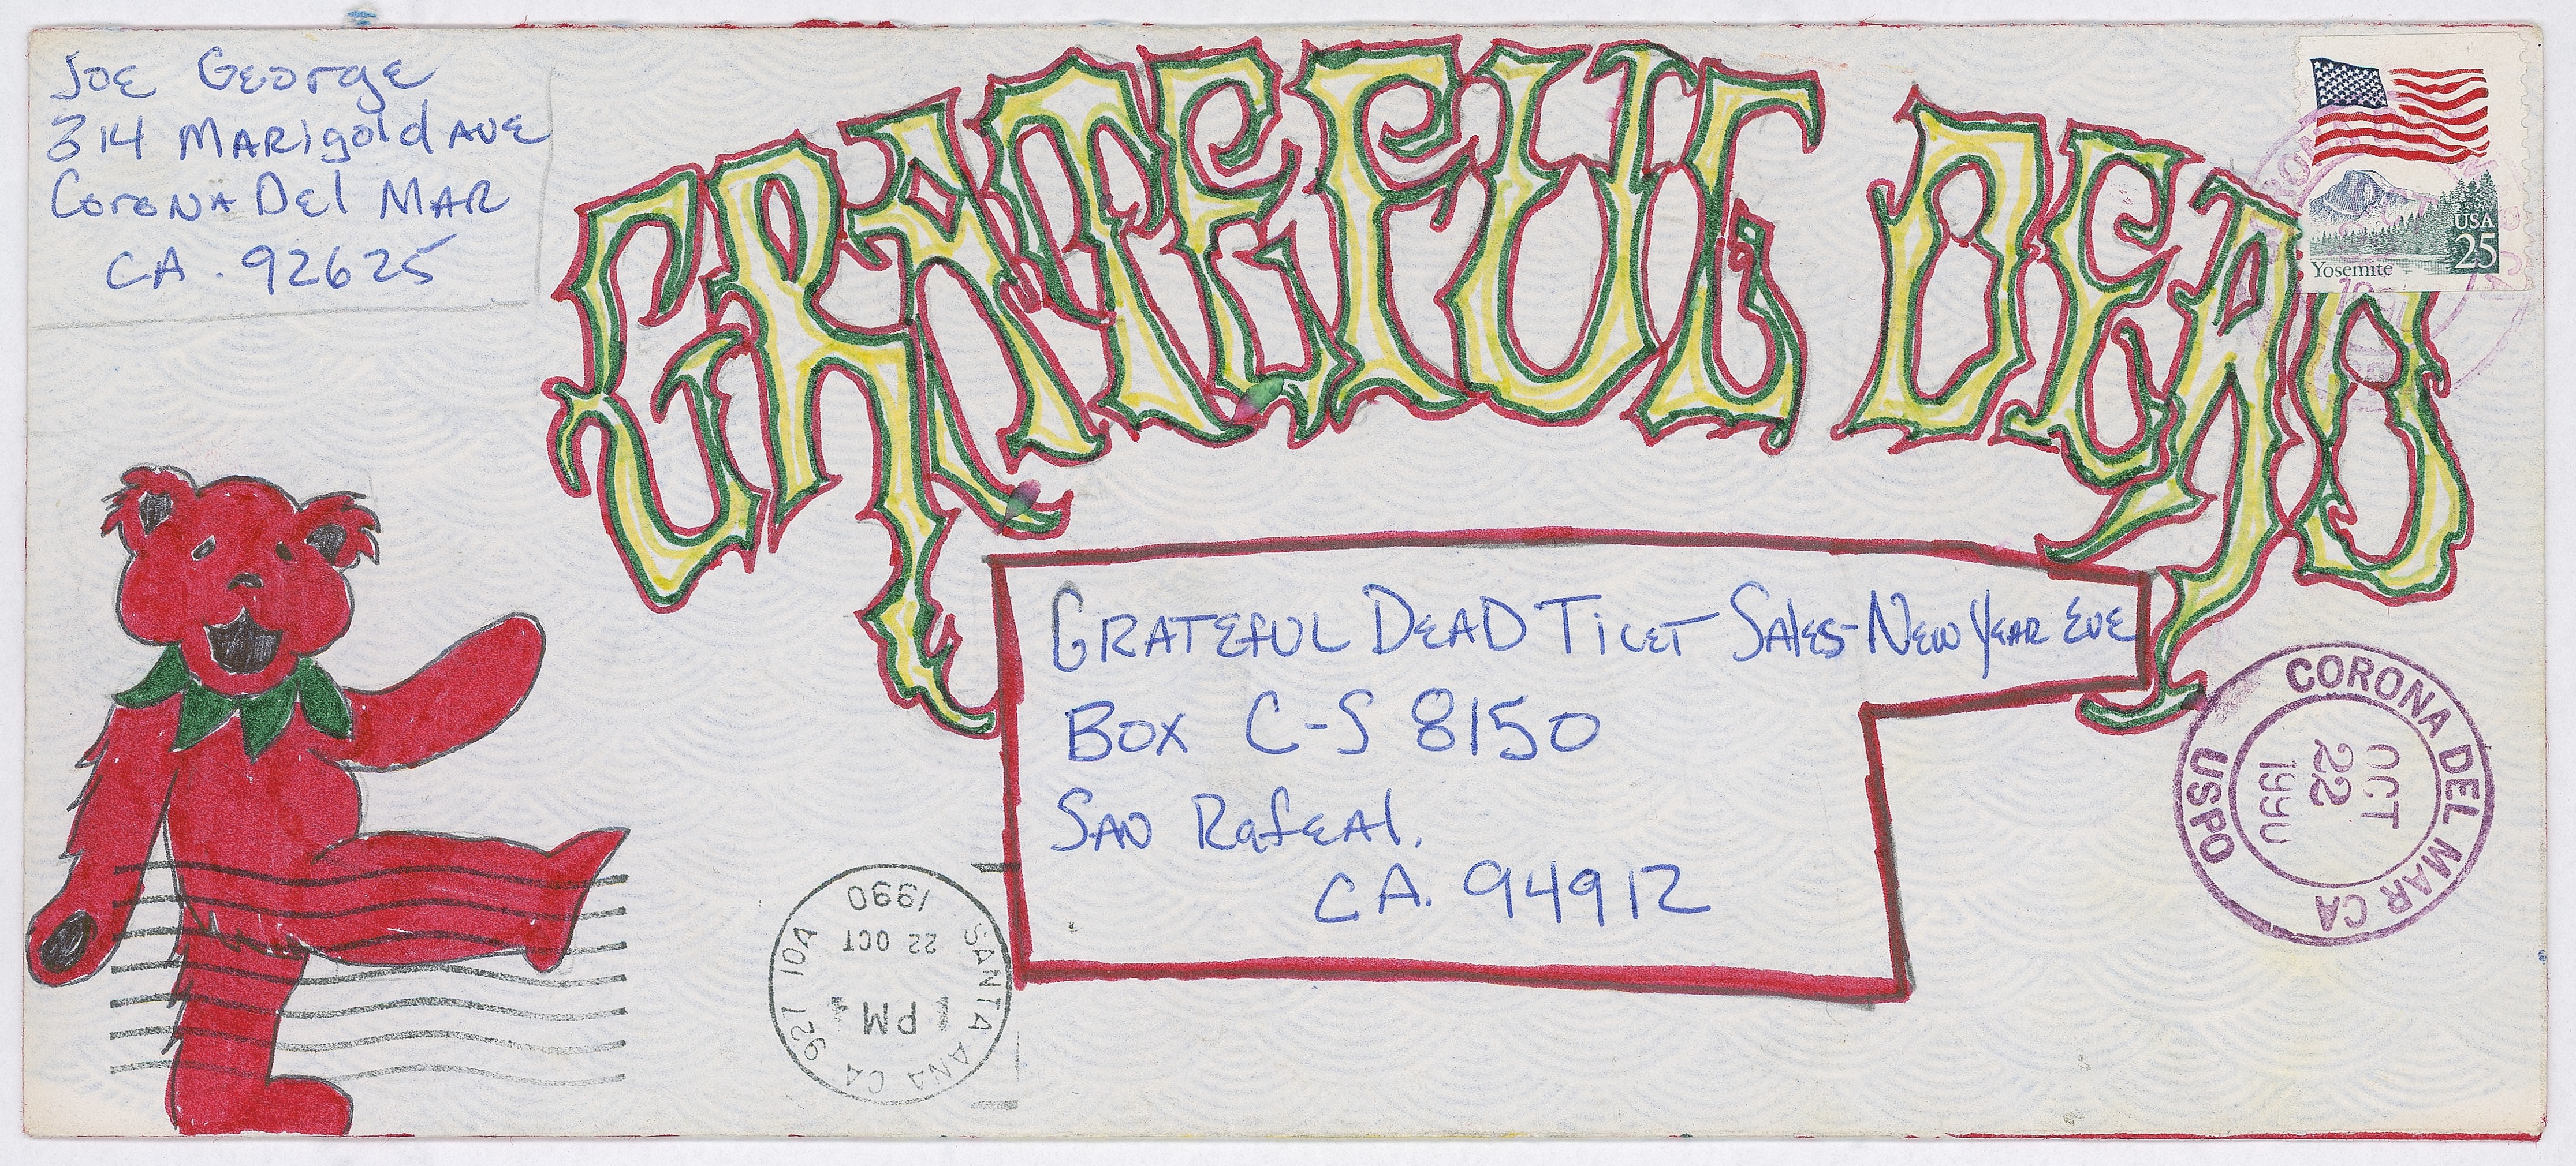 Joe George
314 Marigold Ave
Corona Del Mar
CA. 92625
GRATEFUL DEAD
USA
25
Yosemite
Grateful Dead Ticet Sales-New Year Eve
Box C-S 8150
San Rafeal.
CA. 94912
CORONA DEL MAR CA
OCT
22
1990
USPO
SANTA ANA CA 927 10A
1 PM
22 OCT
1990